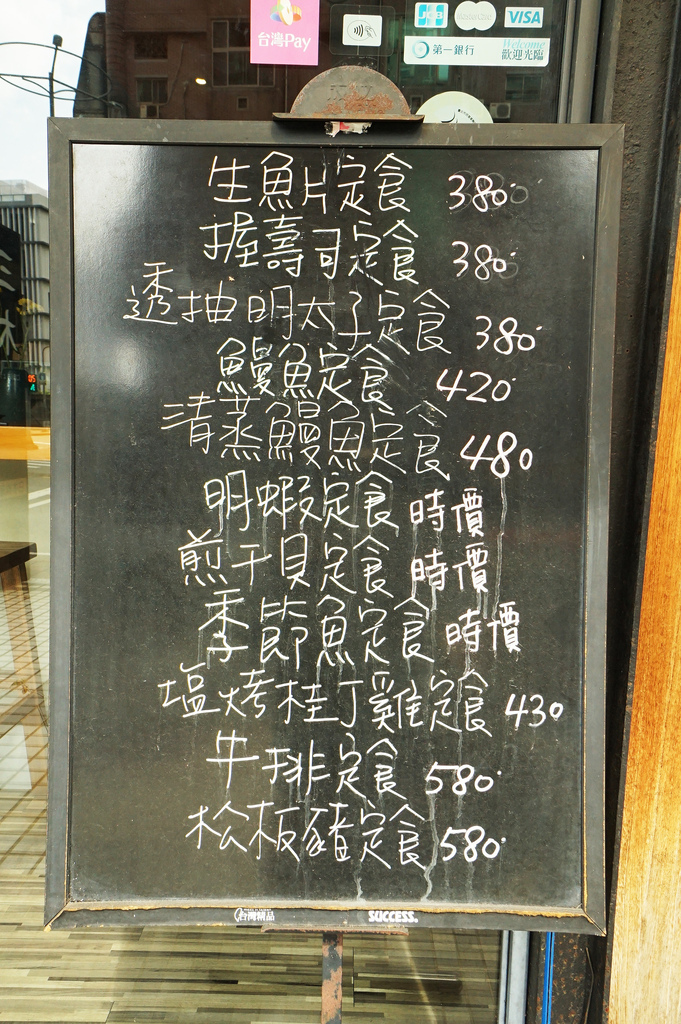 台灣Pay
JCB
mastercard
VISA
第一銀行
Welcome
歡迎光臨
生魚片定食 380
握壽司定食 380
透抽明太子定食 380
鰻魚定食 420
清蒸鰻魚定食 480
明蝦定食 時價
煎干貝定食 時價
季節魚定食 時價
塩烤桂丁雞定食 430
牛排定食 580
松板豬定食 580
台灣精品
SUCCESS.